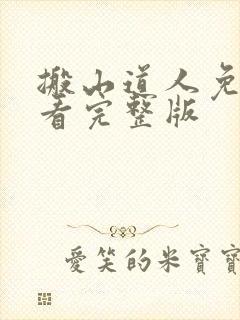 搬山道人免
看完整版
愛笑的米寶寶